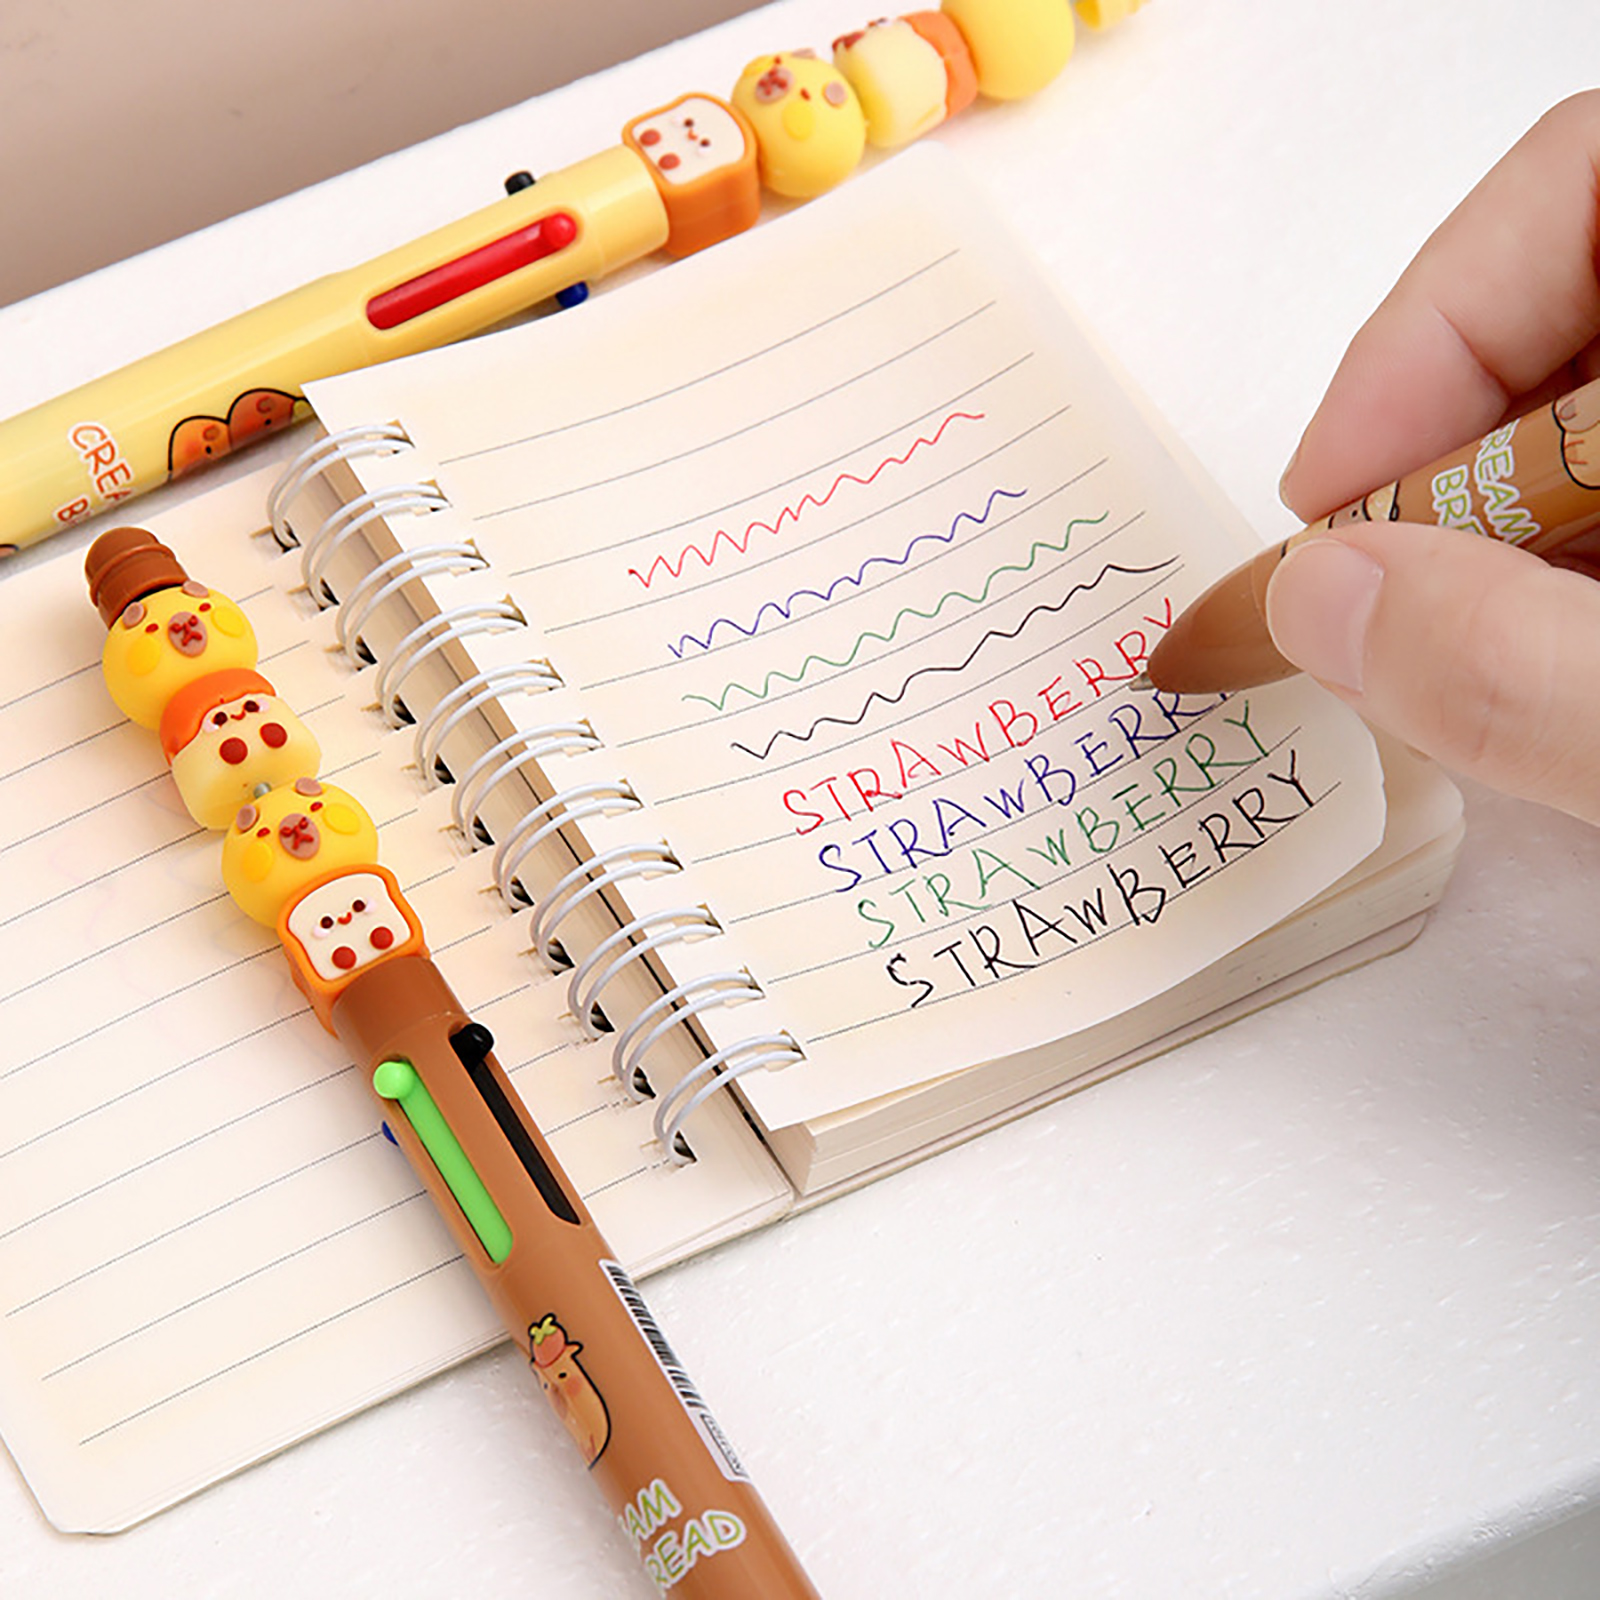 CREA
B
STRAWBERRY
STRAWBERRY
STRAWBERRY
STRAWBERRY
REAM
BRE
AM
READ